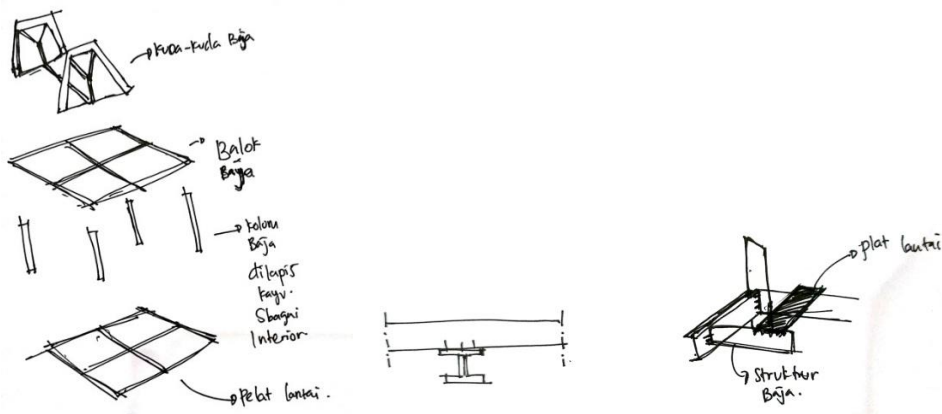 kuda-kuda Baja
Balok
Baja
kolom
Baja
dilapis
kayu.
Sbagai
Interior
Pelat lantai.
plat lantai
Struktur
Baja.